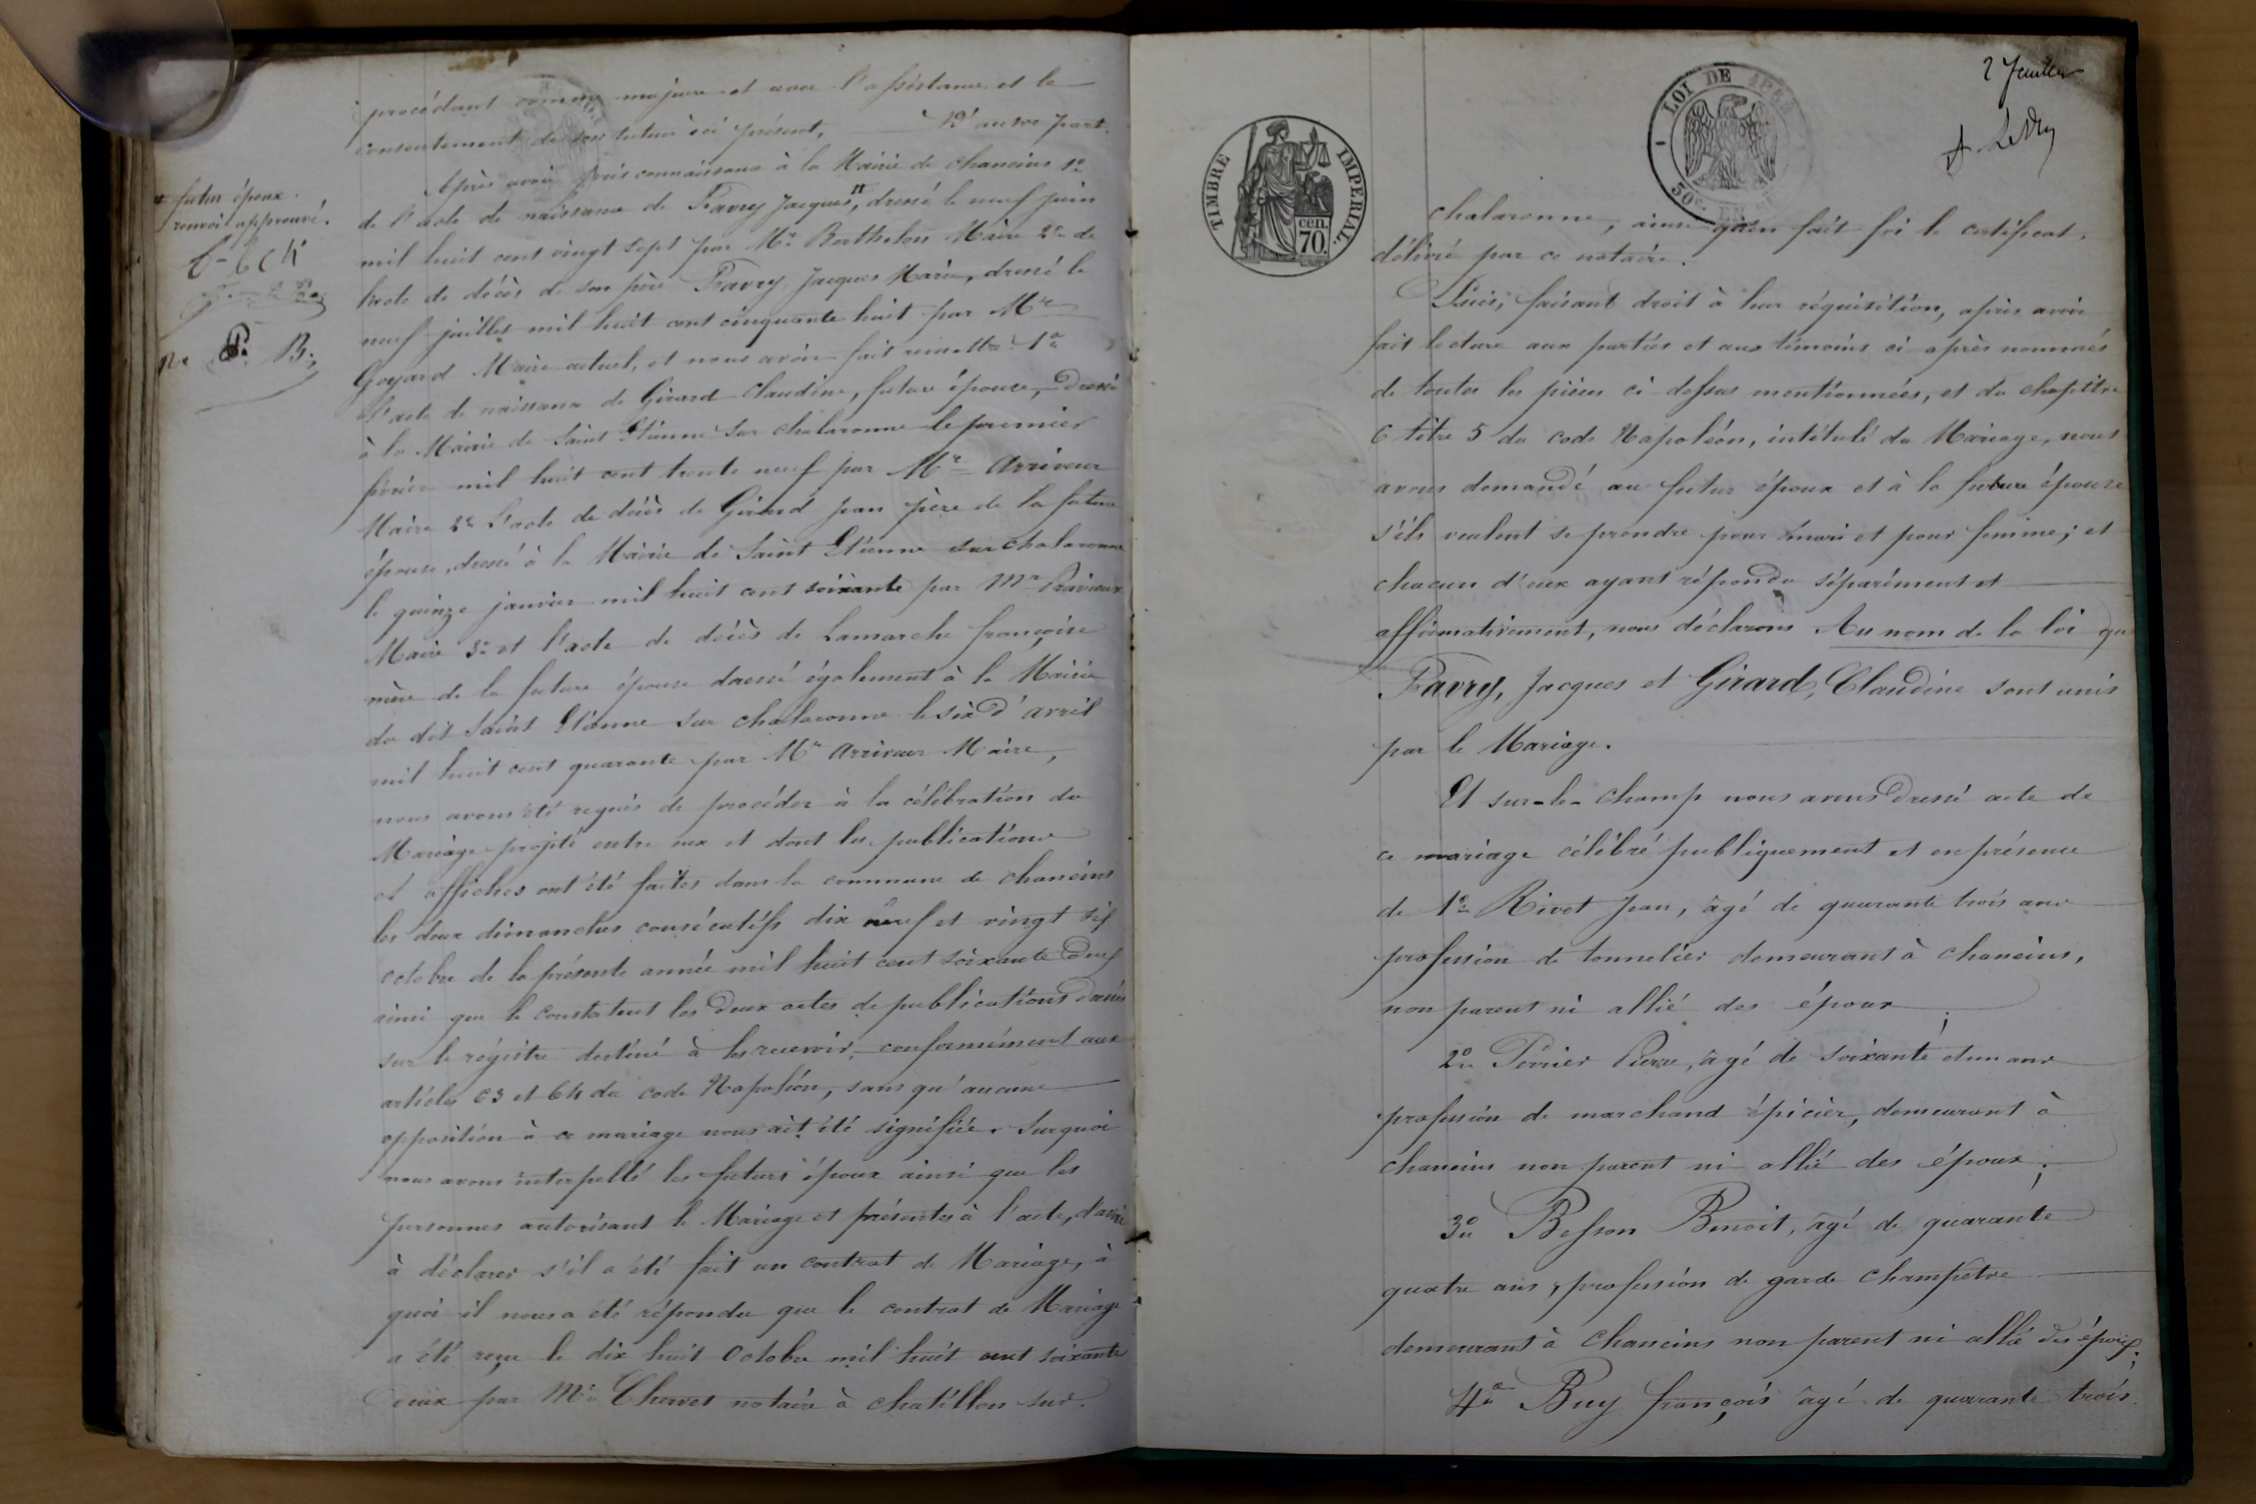 procédant comme majeure et avec l'assistance et le
consentement de son tuteur ici présent, D'autre part.
Après avoir pris connaissance à la Mairie de chaneins 1º
de l'acte de naissance de Favry Jacques, dressé le neuf juin
mil huit cent vingt sept par Mr Berthelon Maire 2º de
l'acte de décès de son père Favry Jacques Marie, dressé le
neuf juillet mil huit cent cinquante huit par Mr
Goyard Maire actuel, et nous avoir fait remettre 1º
l'acte de naissance de Girard Claudine, future épouse, dressé
à la Mairie de Saint Etienne sur chalaronne le premier
février mil huit cent trente neuf par Mr Arriveur
Maire 2º L'acte de décès de Girard jean père de la future
épouse, dressé à la Mairie de Saint Etienne sur chalaronne
le quinze janvier mil huit cent soixante par Mr
Maire 3º et l'acte de décès de Lamarche françoise
mère de la future épouse dressé également à la Mairie
du dit Saint Etienne sur chalaronne le six d'avril
mil huit cent quarante par Mr Arriveur Maire,
nous avons été requis de procéder à la célébration du
Mariage projeté entre eux et dont les publications
et affiches ont été faites dans la commune de chaneins
les deux dimanches consécutifs dix neuf et vingt six
octobre de la présente année mil huit cent soixante deux
ainsi que le constatent les deux actes de publications dressés
sur le régistre destiné à les recevoir, conformément aux
articles 63 et 64 du code Napoléon, sans qu'aucune
opposition à ce mariage nous ait été signifiée. Surquoi
nous avons interpellé les futurs époux ainsi que les
personnes autorisant le Mariage et présentes à l'acte, d'avoir
à déclarer s'il a été fait un contrat de Mariage, à
quoi il nous a été répondu que le contrat de Mariage
a été reçu le dix huit Octobre mil huit cent soixante
deux par Me Chervet notaire à chatillon sur
futur époux.
renvoi approuvé.
B.
TIMBRE IMPERIAL.
cen. 70.
LOI DE
50c. EN
2 feuillet
chalaronne, ainsi qu'en fait foi le certificat
délivré par ce notaire.
Puis, faisant droit à leur réquisition, après avoir
fait lecture aux parties et aux témoins ci après nommés
de toutes les pièces ci dessus mentionnées, et du chapitre
6 titre 5 du code Napoléon, intitulé du Mariage, nous
avons demandé au futur époux et à la future épouse
s'ils veulent se prendre pour mari et pour femme; et
chacun d'eux ayant répondu séparément et
affirmativement, nous déclarons Au nom de la loi que
Favry, Jacques et Girard, Claudine sont unis
par le Mariage.
Et sur-le-champ nous avons dressé acte de
ce mariage célébré publiquement et en présence
de 1º Rivet Jean, âgé de quarante trois ans
profession de tonnelier demeurant à chaneins,
non parent ni allié des époux;
2º Perrier Pierre, âgé de soixante et un ans
profession de marchand épicier, demeurant à
chaneins non parent ni allié des époux;
3º Besson Benoit, âgé de quarante
quatre ans, profession de garde champêtre
demeurant à chaneins non parent ni allié des époux;
4º Buy françois âgé de quarante trois